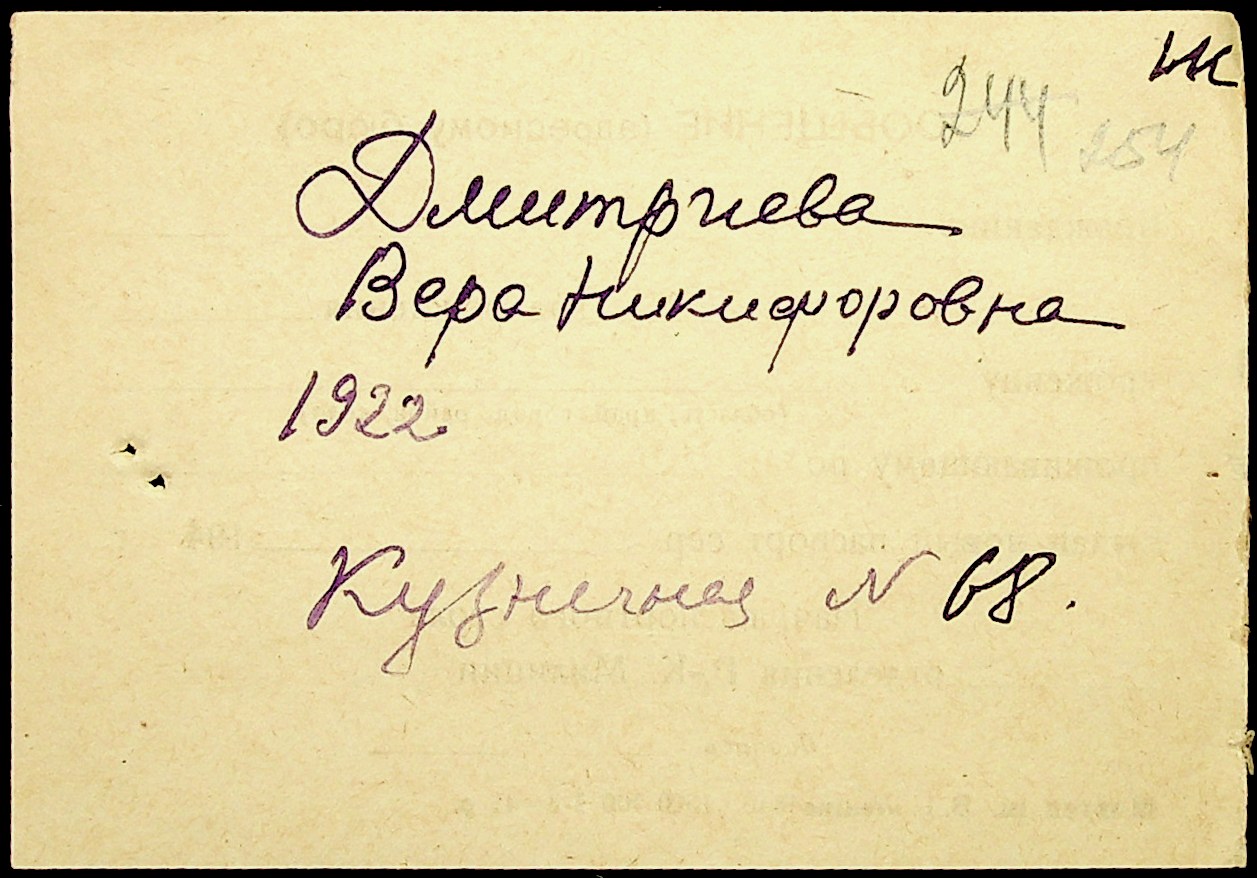 ж
244
254
Дмитриева
Вера Никифоровна
1922
Кузничная N 68.